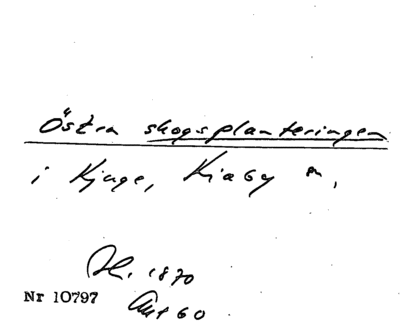 Östra skogsplanteringen
i Kjuge, Kiaby sn,
1870
Nr 10797
Akt 60